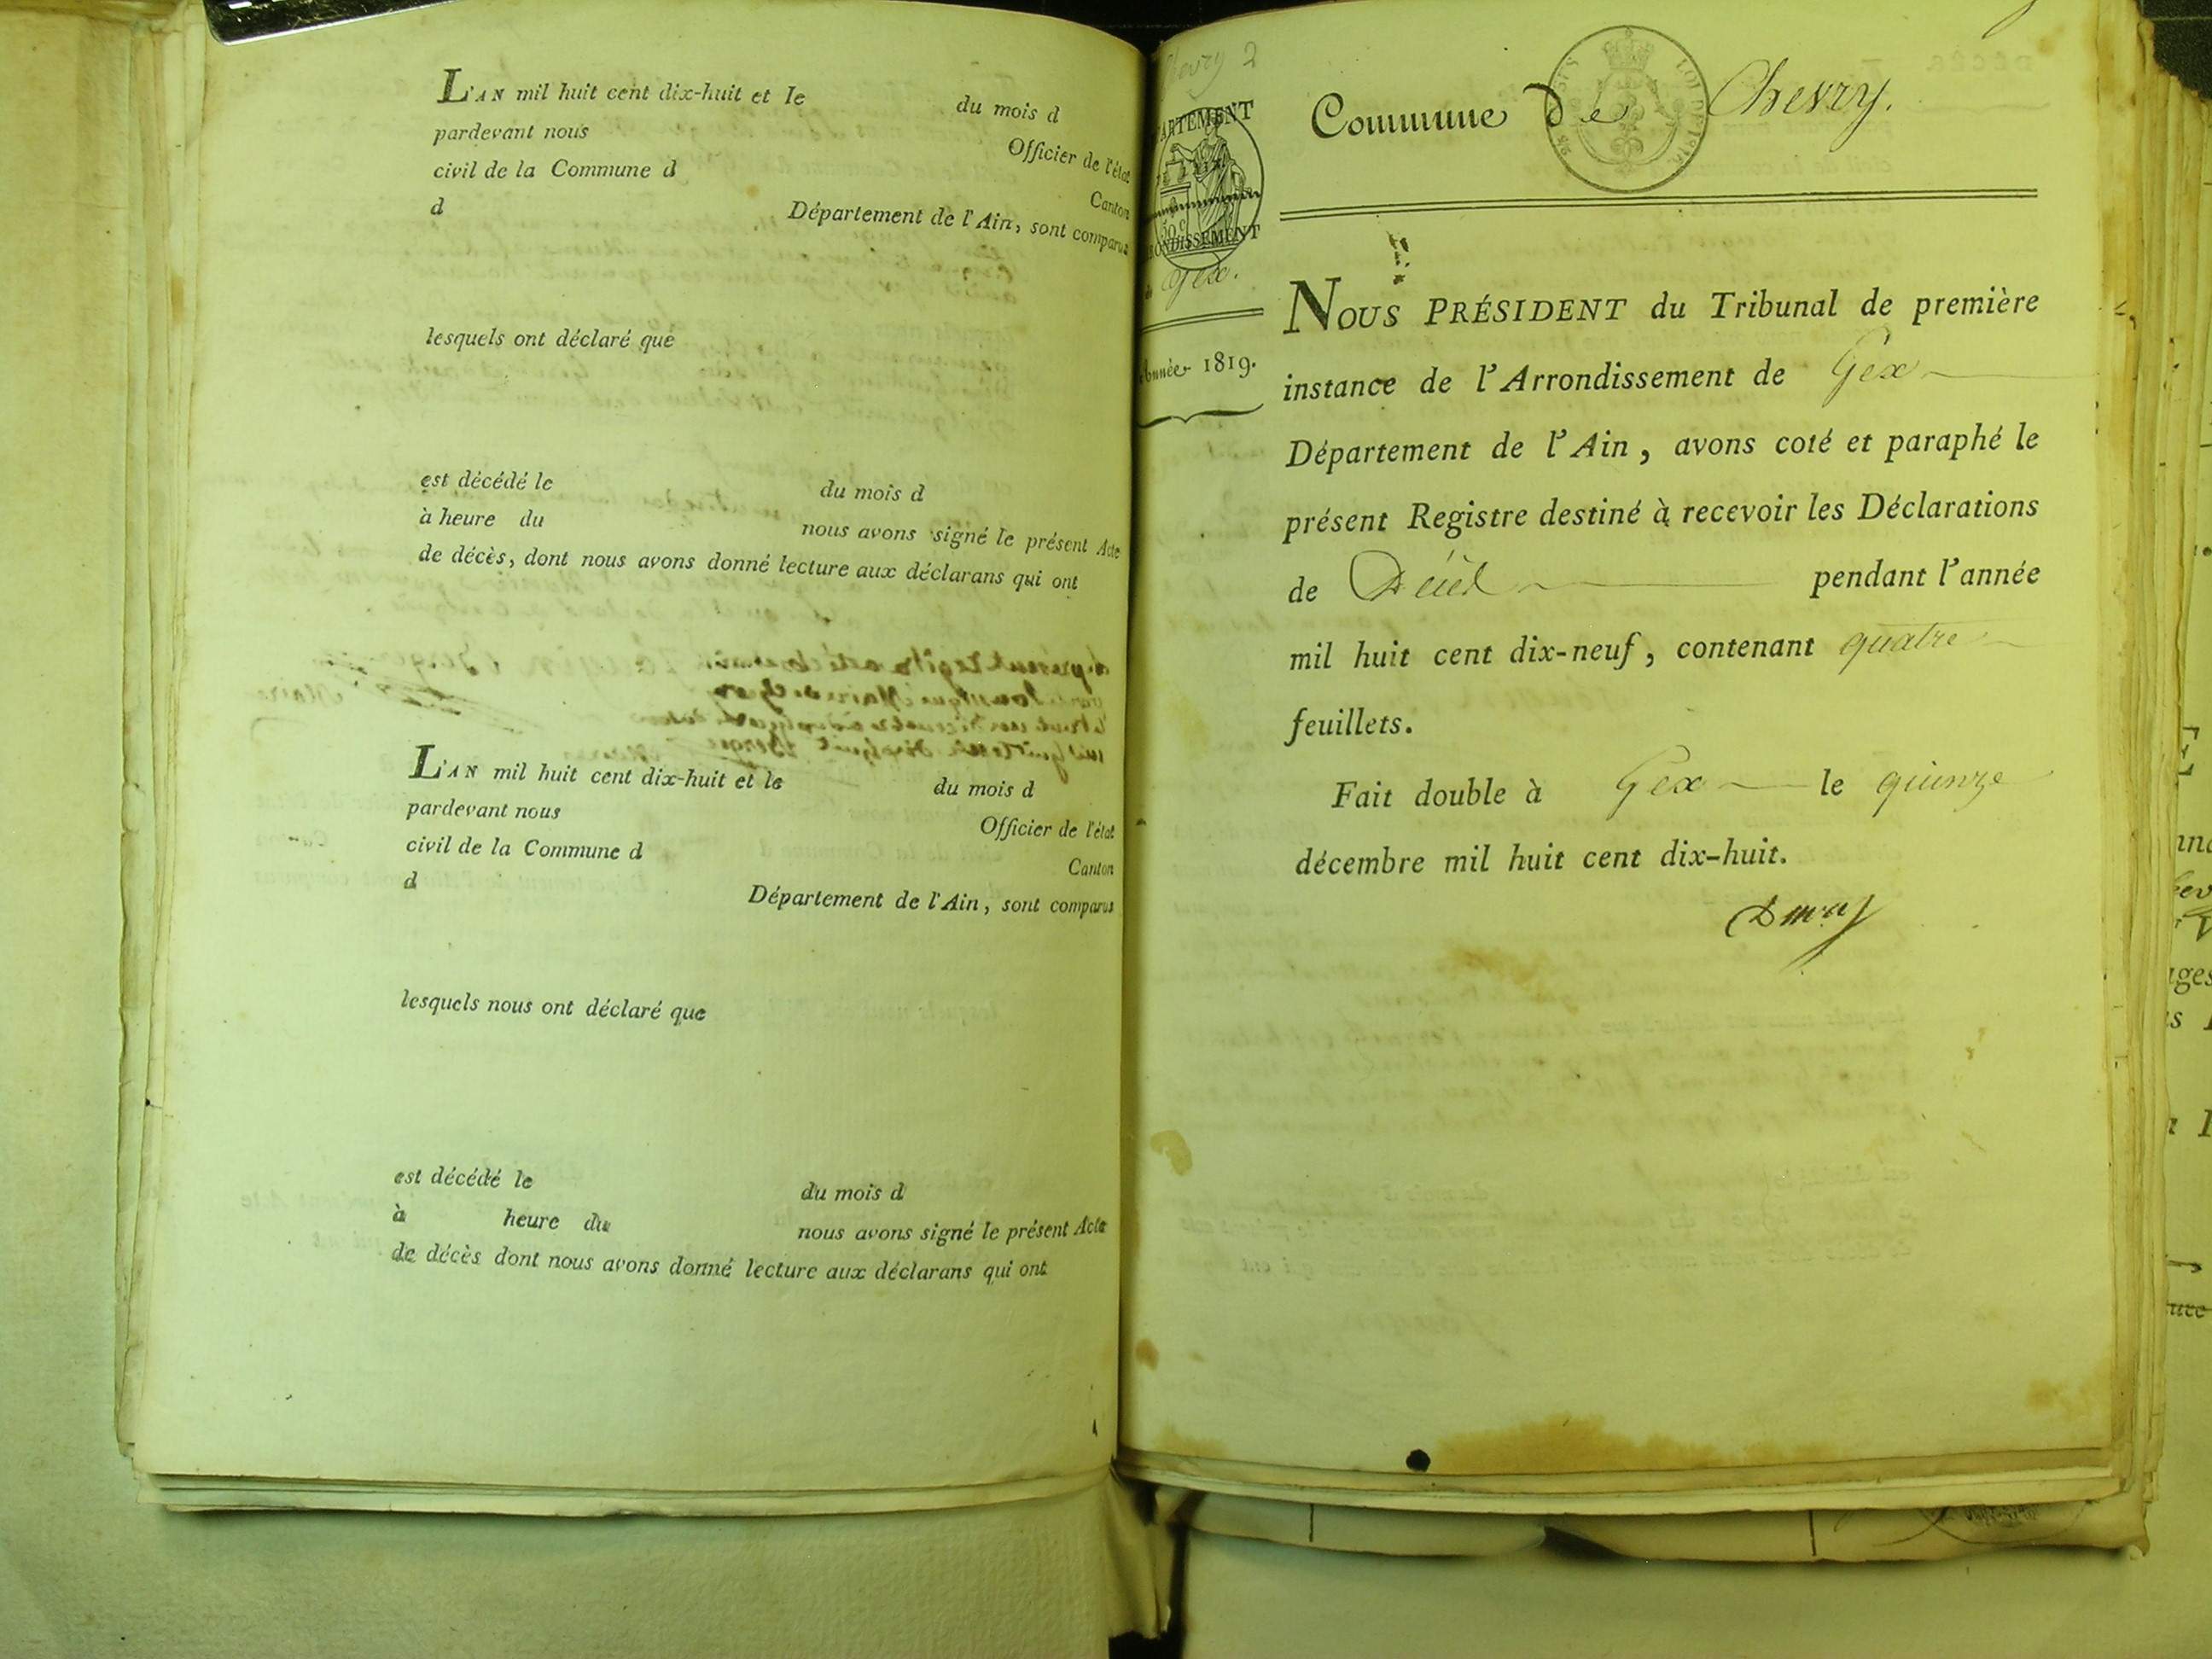 L'AN mil huit cent dix-huit et le du mois d
pardevant nous Officier de l'état
civil de la Commune d Canton
d Département de l'Ain, sont comparus
lesquels ont déclaré que
est décédé le du mois d
à heure du nous avons signé le présent Acte
de décès, dont nous avons donné lecture aux déclarans qui ont
L'AN mil huit cent dix-huit et le du mois d
pardevant nous Officier de l'état
civil de la Commune d Canton
d Département de l'Ain, sont comparus
lesquels nous ont déclaré que
est décédé le du mois d
à heure du nous avons signé le présent Acte
de décès dont nous avons donné lecture aux déclarans qui ont
Chevry 2
ARTEMENT
50 c
ONDISSEMENT
de Gex.
Année 1819.
Commune de Chevry.
NOUS PRÉSIDENT du Tribunal de première
instance de l'Arrondissement de Gex
Département de l'Ain, avons coté et paraphé le
présent Registre destiné à recevoir les Déclarations
de Décès pendant l'année
mil huit cent dix-neuf, contenant quatre
feuillets.
Fait double à Gex le quinze
décembre mil huit cent dix-huit.